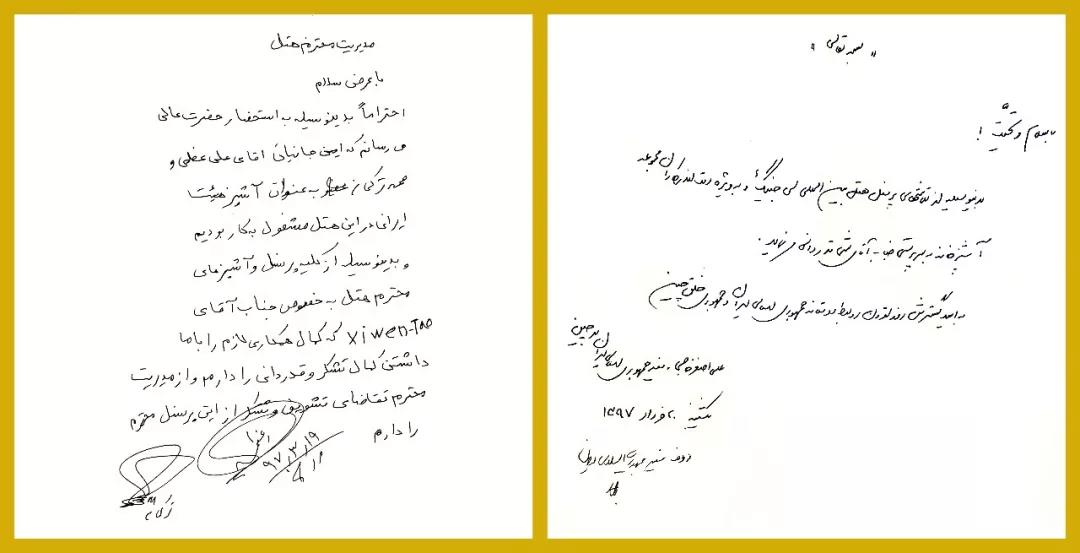 مدیریت محترم هتل
با عرض سلام
احتراماً بدینوسیله به استحضار حضرت عالی
می رسانم که این جانبان آقای علی عظمی و
به عنوان آشپز هیئت
ایرانی در این هتل مشغول به کار بودیم
و بدینوسیله از کلیه پرسنل و آشپزهای
محترم هتل به خصوص جناب آقای
Xiwen-Tao که کمال همکاری لازم را با ما
داشتن کمال تشکر و قدردانی را دارم و از مدیریت
محترم تقاضای تشویق و تشکر از این پرسنل محترم
را دارم
۹۷/۳/۱۹
" بسمه تعالی "
با سلام و تحیّت !
بدینوسیله از تلاشهای پرسنل هتل بین المللی و به ویژه مجموعه
آشپزخانه به سرپرستی جناب آقای قدردانی می نماید.
به امید گسترش روز افزون روابط دوستانه جمهوری اسلامی ایران و جمهوری خلق چین
علی اصغر سفیر جمهوری اسلامی ایران در چین
یکشنبه ۲۰ خرداد ۱۳۹۷
سفیر جمهوری اسلامی ایران